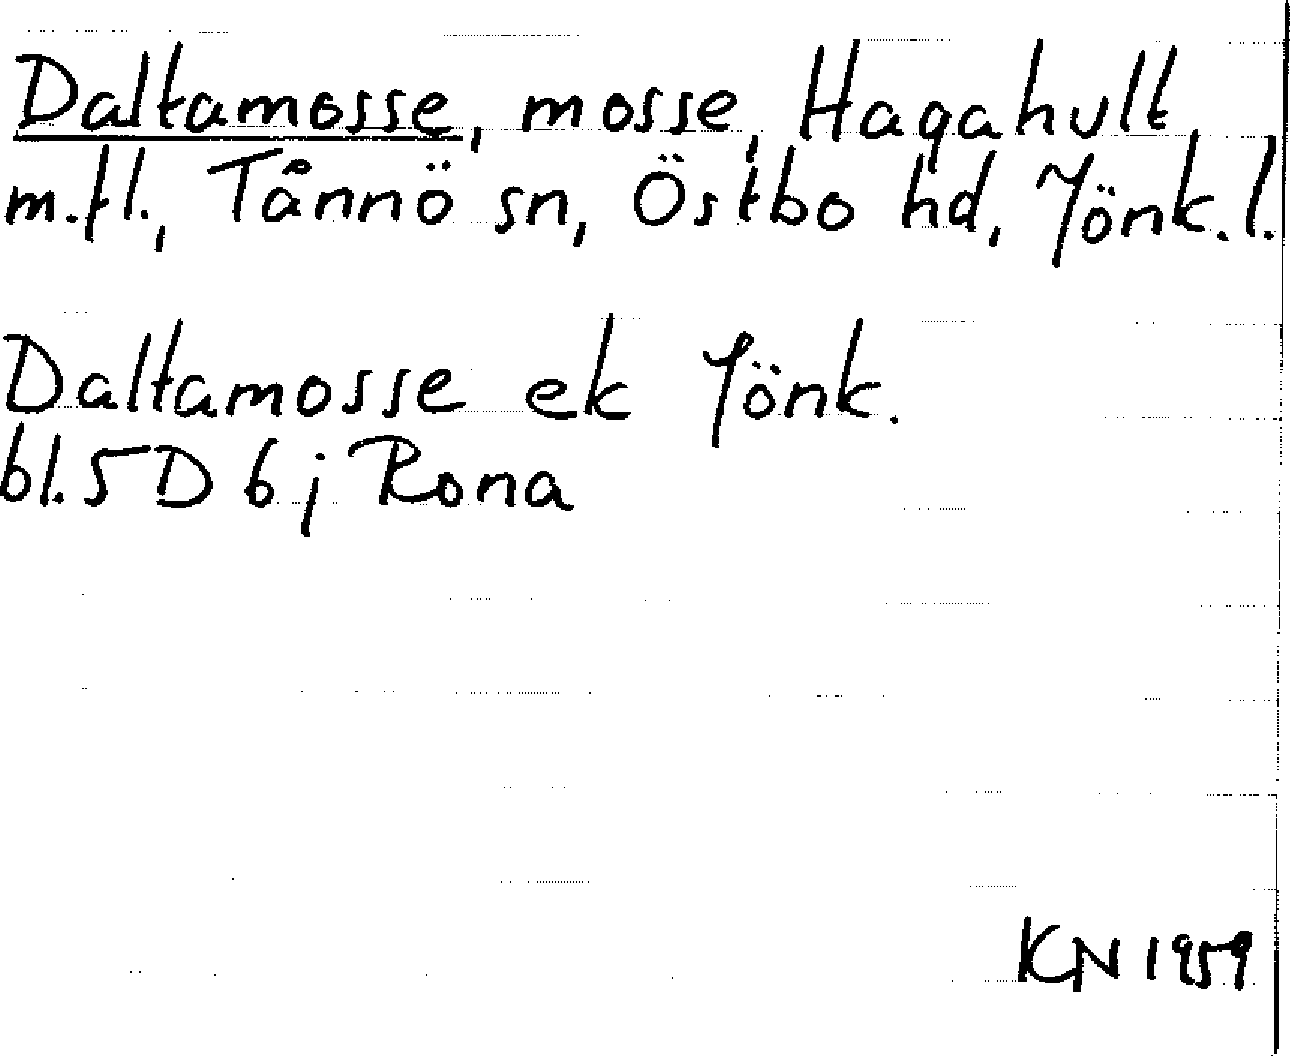 Daltamosse, mosse, Hagahult
m.fl., Tånnö sn, Östbo hd, Jönk.l.
Daltamosse ek Jönk.
bl. 5D 6j Rona
KN 1959